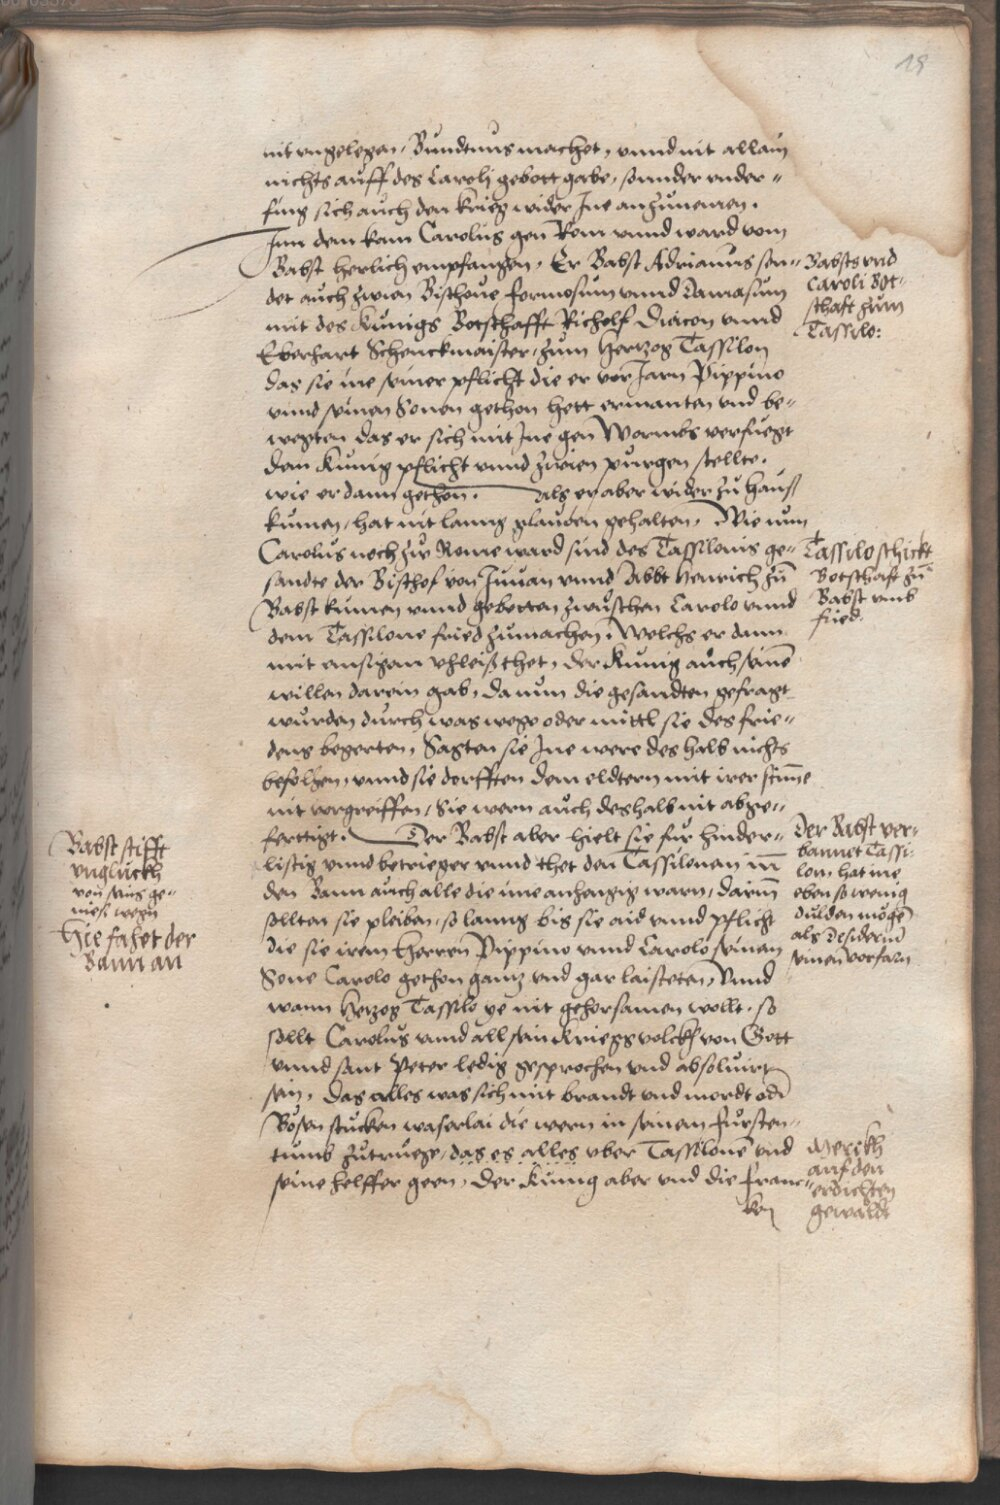 19
nit ungelegen, Bundtnus machet, unnd nit allain
nichts auff des Caroli gebott gabe, sonnder under-
fing sich auch den krieg wider Ine anzunemen.
Inn dem kam Carolus gen Rom unnd ward vom
Babst herlich empfangen. Er Babst Adrianus sen-
det auch zwien Bischove Formosum unnd Damasum
mit des Kunigs Botschafft Richolf Diacon unnd
Eberhart Schenckmaister, zum Hertzog Tassilon
das sie ine seiner pflicht die er vor Jarn Pippino
unnd seinen Sonen gethon hett ermanten und be-
wegten das er sich mit Ine gen Wormbs verfuegt
dem Kunig pflicht unnd zwien purgen stellte.
wie er dann gethon. Als er aber wider zu hauß
kumen, hat nit lanng glauben gehalten. Wie nun
Carolus noch zu Rome ward sind des Tassilonis ge-
sandte der Bischof von Juvan unnd Abbt Heinrich zū
Babst kumen unnd gebetten zwuschen Carolo unnd
dem Tassilone fried zumachen. Welchs er dann
mit emsigem vhleiß thet, der Kunig auch seinē
willen darein gab, Da nun die gesandten gefragt
wurden durch was wege oder mittl sie des frie-
dens begerten, Sagten sie Ine were deshalb nichts
befolhen, unnd sie dorfften dem eldtern mit irer stim̄e
nit vorgreiffen, Sie wern auch deshalb nit abge-
fertigt. Der Babst aber hielt sie fur hinder-
listig unnd betrieger unnd thet den Tassilonem in
den Bann auch alle die ime anhengig warn, darin̄
sollten sie pleiben, so lanng bis sie aid unnd pflicht
die sie irem Herren Pippino unnd Carolo seinem
Sone Carolo gethon ganz und gar laisteten, Unnd
wann Hertzog Tassilo ye nit gehorsamen wollt. so
sollt Carolus unnd all sein kriegsvolckh von Gott
unnd sant Peter ledig gesprochen und absolvirt
sein, Das alles was sich mit brandt und mordt odr
Bosen stucken waserlai die wern in seinem fursten-
tumb zutruege, das es alles uber Tassilonē und
seine helffer geen, Der Kunig aber und die Franc-
ken
Babsts und
Caroli Bot-
schaft zum
Tassilo:
Tassilo schickt
Botschaft zū
Babst umb
fried.
Der Babst ver-
bannet Tassi-
lon, hat ine
eben so wenig
dulden mögē
als Desiderium
seinen vorfarn
Merckh
auf den
erdichten
gewaldt
Babst stifft
unglückh
von seins ge-
nieß wegn
Hie fahet der
Bann an